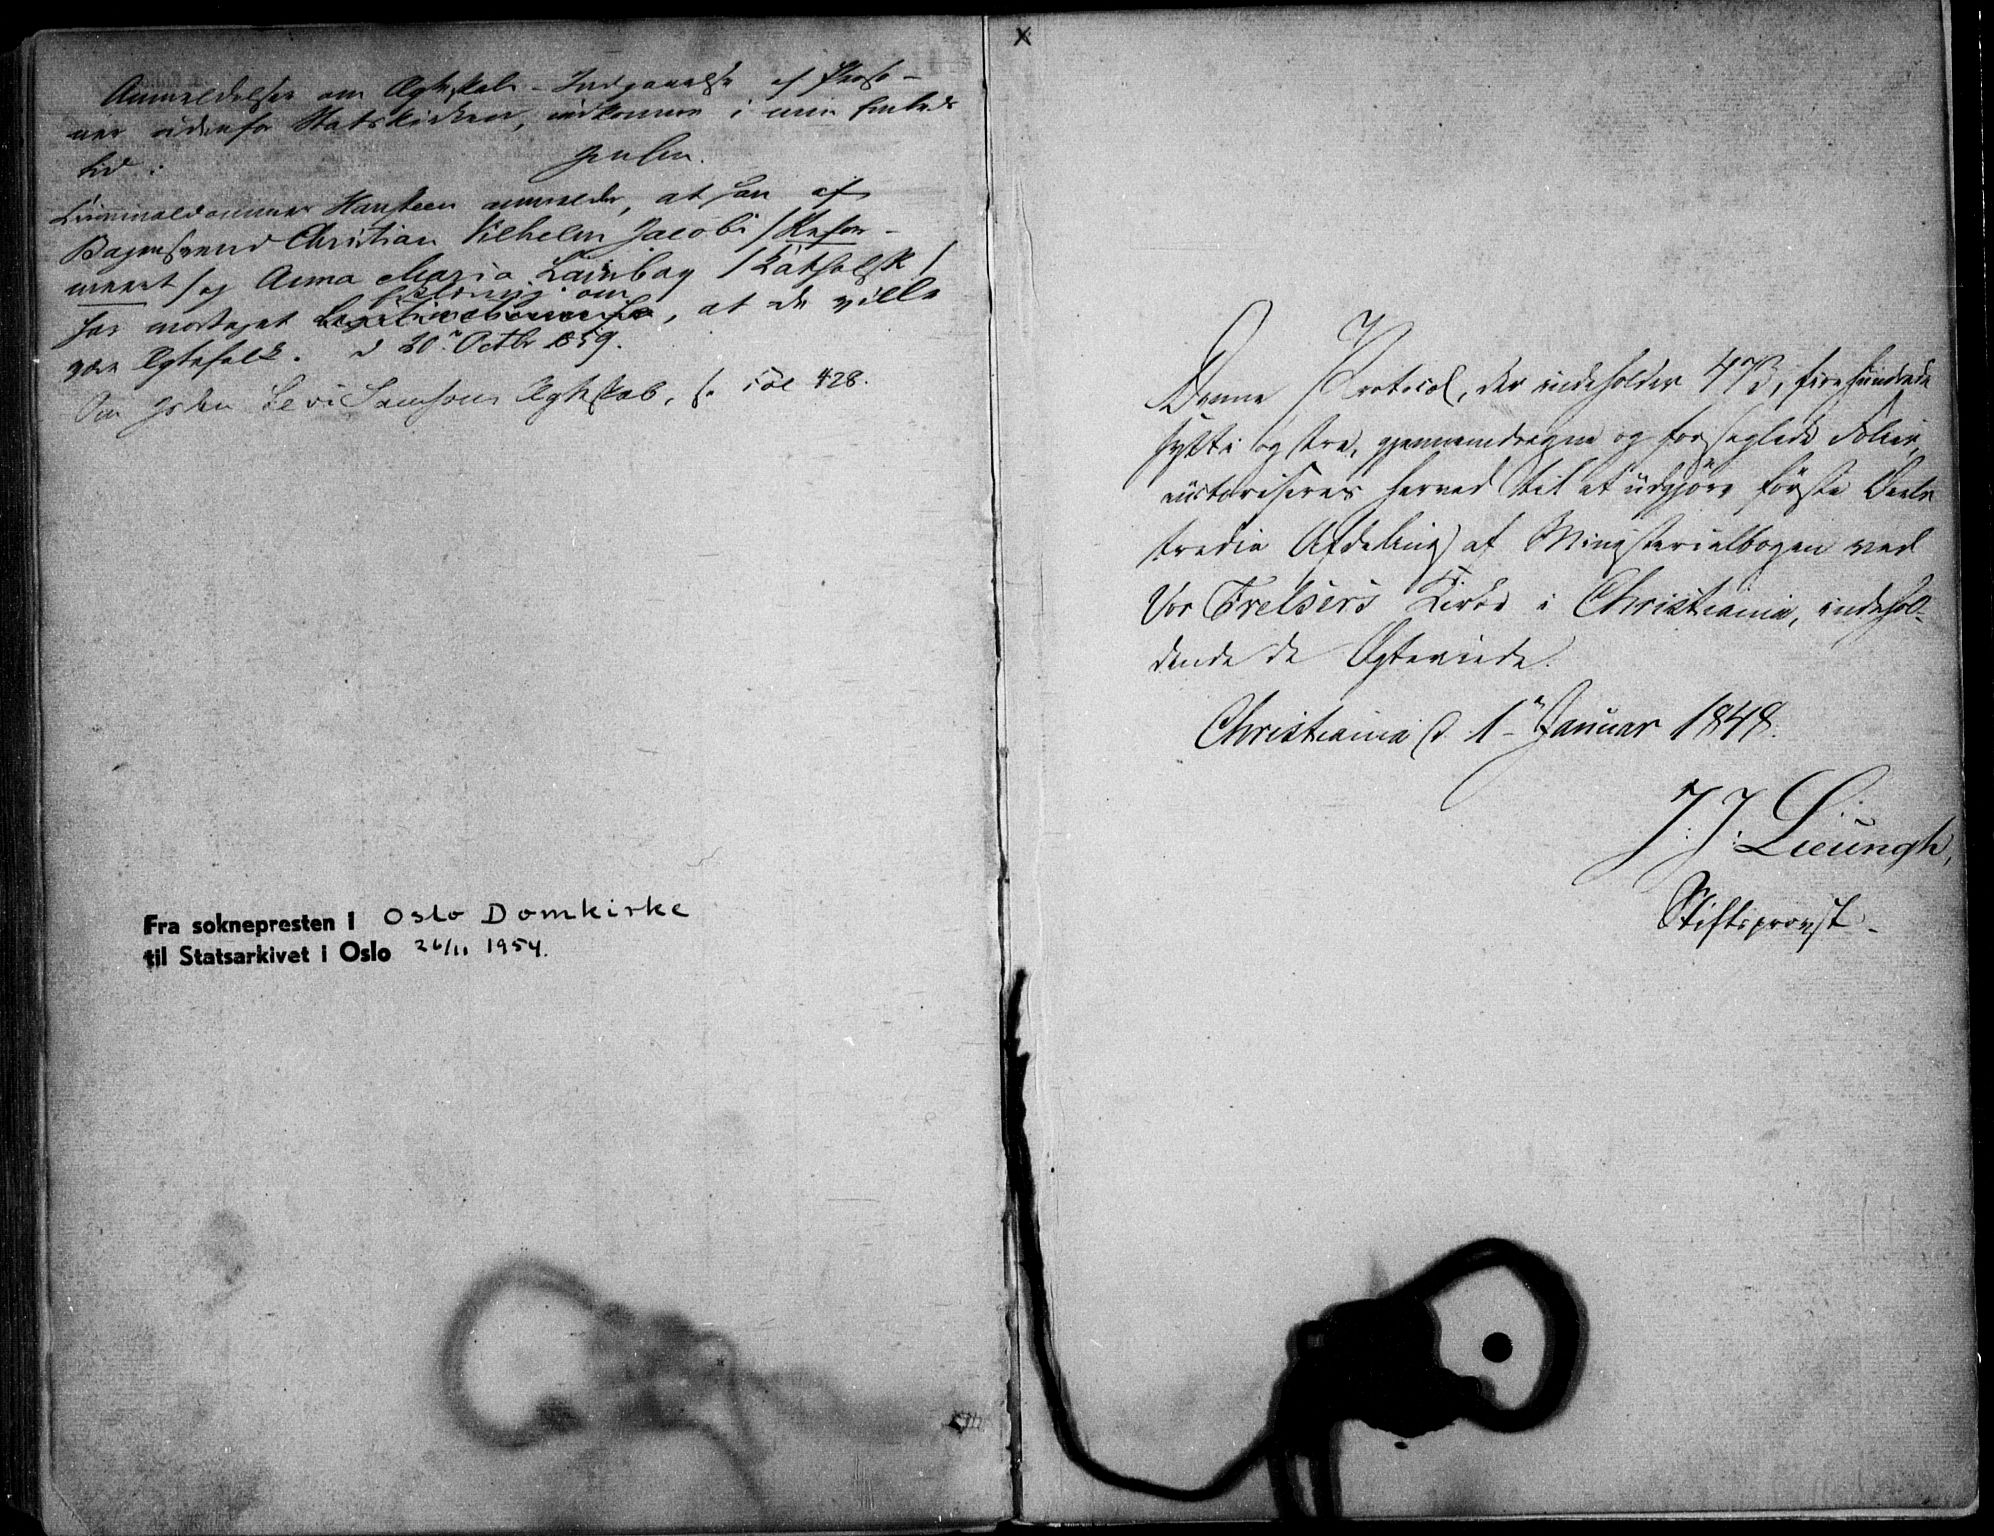 Anmeldelser om Ægteskabs-Indgaaelse af Perso-
ner udenfor Statskirken, indkomne i min Embeds
tid:
Criminaldommer Hansteen anmelder, at han af
Bagersvend Christian Vilhelm Jacobi /Refor-
meert/ og Anna Maria /Katholsk/
har modtaget Erklæring om, at de ville
være Ægtefolk. d 20n Octbr 1859.
Om Jøden Levi Samsons Ægteskab, s. Fol 428.
Fra soknepresten i Oslo Domkirke
til Statsarkivet i Oslo 26/11 1954.
x
Denne Protocol, der indeholder 473, fire hundrede
sytti og tre, gjennemdragne og forseglede Folier,
autoriseres herved til at udgjøre første Deels
tredie Afdeling af Ministerialbogen ved
Vor Frelsers Kirke i Christiania, indehol-
dende de Ægteviede.
Christiania d. 1n Januar 1848.
J. J. Lieungh,
Stiftsprovst.